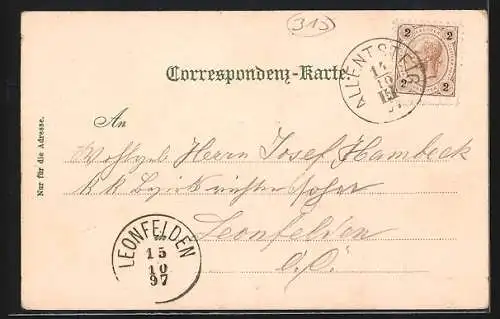 313
Correspondenz-Karte.
2 2
2 2
ALLENTSTEIG
14
10
97
Nur für die Adresse.
An
Wohlgeb. Herrn Josef Hambeck
k k Bezirksrichters
Leonfelden
O. Ö.
LEONFELDEN
15
10
97